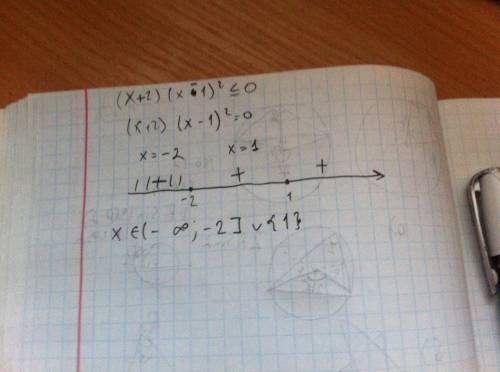 (x+2) (x-1)² ≤ 0
(x+2) (x-1)² = 0
x=-2 x=1
+ +
-2 1
x ∈ (- ∞; -2] ∨ {1}